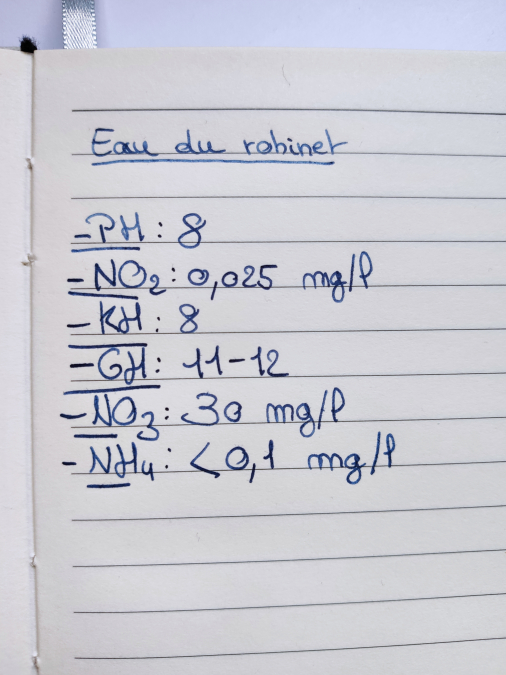 Eau du robinet
- PH : 8
- NO₂ : 0,025 mg/l
- KH : 8
- GH : 11-12
- NO₃ : 30 mg/l
- NH₄ : < 0,1 mg/l